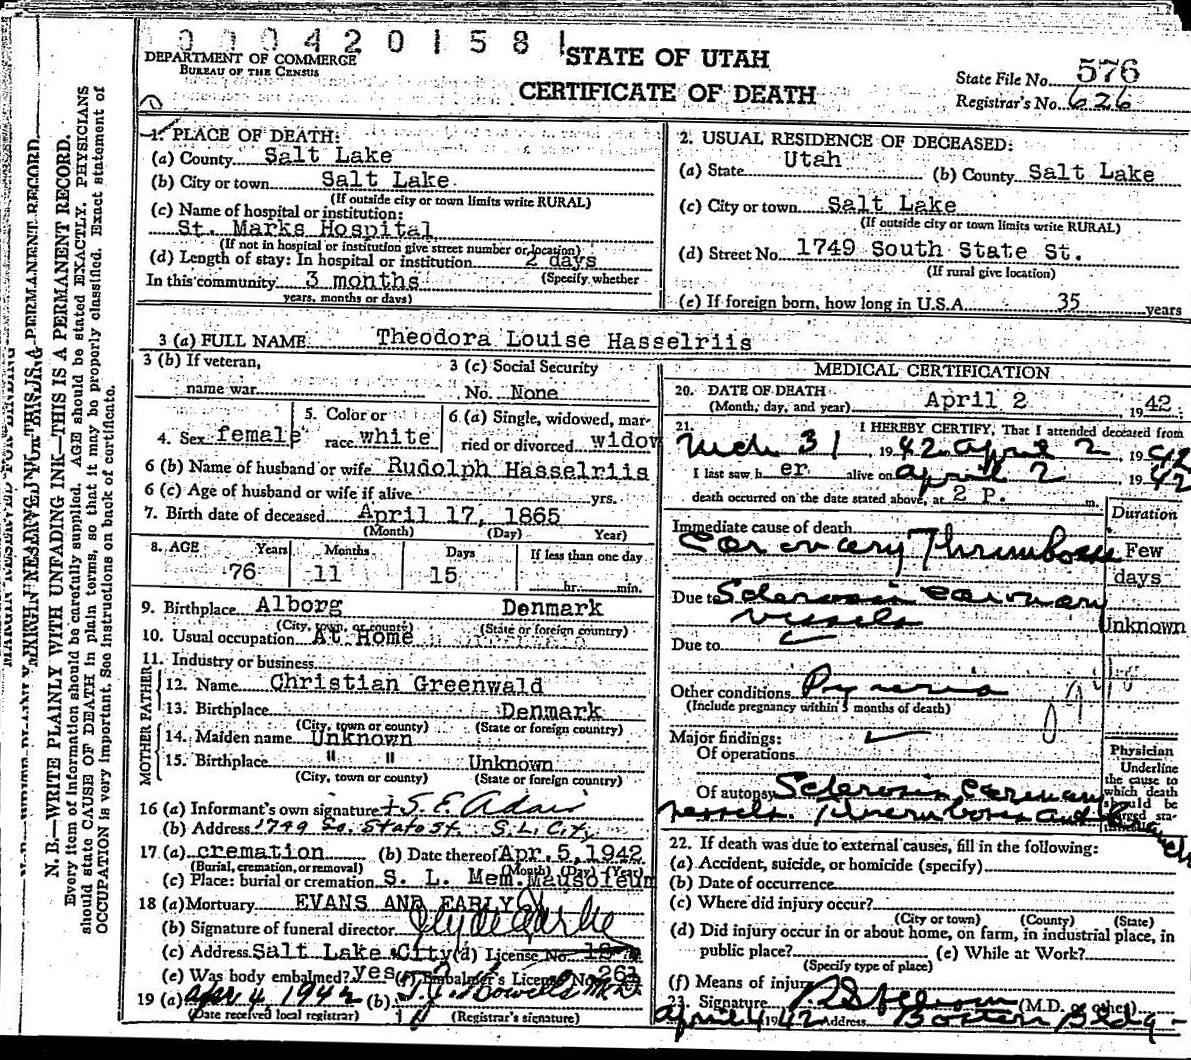 0 0 0 4 2 0 1 5 8 1
DEPARTMENT OF COMMERCE
BUREAU OF THE CENSUS
STATE OF UTAH
CERTIFICATE OF DEATH
State File No. 576
Registrar's No. 626
N. B.—WRITE PLAINLY WITH UNFADING INK—THIS IS A PERMANENT RECORD.
Every item of information should be carefully supplied. AGE should be stated EXACTLY. PHYSICIANS
should state CAUSE OF DEATH in plain terms, so that it may be properly classified. Exact statement of
OCCUPATION is very important. See instructions on back of certificate.
1. PLACE OF DEATH:
(a) County Salt Lake
(b) City or town Salt Lake
(If outside city or town limits write RURAL)
(c) Name of hospital or institution:
St. Marks Hospital
(If not in hospital or institution give street number or location)
(d) Length of stay: In hospital or institution 2 days
(Specify whether
In this community 3 months
years, months or days)
2. USUAL RESIDENCE OF DECEASED:
(a) State Utah (b) County Salt Lake
(c) City or town Salt Lake
(If outside city or town limits write RURAL)
(d) Street No. 1749 South State St.
(If rural give location)
(e) If foreign born, how long in U.S.A. 35 years
3 (a) FULL NAME Theodora Louise Hasselriis
3 (b) If veteran,
name war
3 (c) Social Security
No. None
4. Sex female
5. Color or
race white
6 (a) Single, widowed, mar-
ried or divorced widow
6 (b) Name of husband or wife Rudolph Hasselriis
6 (c) Age of husband or wife if alive yrs.
7. Birth date of deceased April 17, 1865
(Month) (Day) Year)
8. AGE Years Months Days If less than one day
76 11 15 hr. min.
9. Birthplace Alborg Denmark
(City, town, or county) (State or foreign country)
10. Usual occupation At Home
11. Industry or business
FATHER
12. Name Christian Greenwald
13. Birthplace Denmark
(City, town or county) (State or foreign country)
MOTHER
14. Maiden name Unknown
15. Birthplace " " Unknown
(City, town or county) (State or foreign country)
16 (a) Informant's own signature S. E. Adair
(b) Address 1749 So. State St. S. L. City
17. (a) cremation (b) Date thereof Apr. 5, 1942
(Burial, cremation, or removal) (Month) (Day) (Year)
(c) Place: burial or cremation S. L. Mem. Mausoleum
18 (a) Mortuary EVANS AND EARLY
(b) Signature of funeral director
(c) Address Salt Lake City (d) License No.
(e) Was body embalmed? yes (f) Embalmer's License No. 261
19 (a) Apr 4, 1942 (b)
(Date received local registrar) (Registrar's signature)
MEDICAL CERTIFICATION
20. DATE OF DEATH
(Month, day, and year) April 2 1942
21. I HEREBY CERTIFY, That I attended deceased from
Mch 31 1942 to April 2, 1942
I last saw h er alive on April 2 1942
death occurred on the date stated above, at 2 P. m.
Duration
Immediate cause of death
Coronary Thrombosis Few
days
Due to Sclerosis coronary
vessels Unknown
Due to
Other conditions Pyuria
(Include pregnancy within 3 months of death)
Major findings:
Of operations
Physician
Underline
the cause to
which death
should be
charged sta-
tistically.
Of autopsy Sclerosis coronary
vessels. Thrombosis
22. If death was due to external causes, fill in the following:
(a) Accident, suicide, or homicide (specify)
(b) Date of occurrence
(c) Where did injury occur?
(City or town) (County) (State)
(d) Did injury occur in or about home, on farm, in industrial place, in
public place? (e) While at Work?
(Specify type of place)
(f) Means of injury
23. Signature (M.D. or other)
April 4 1942 Address Boston Bldg